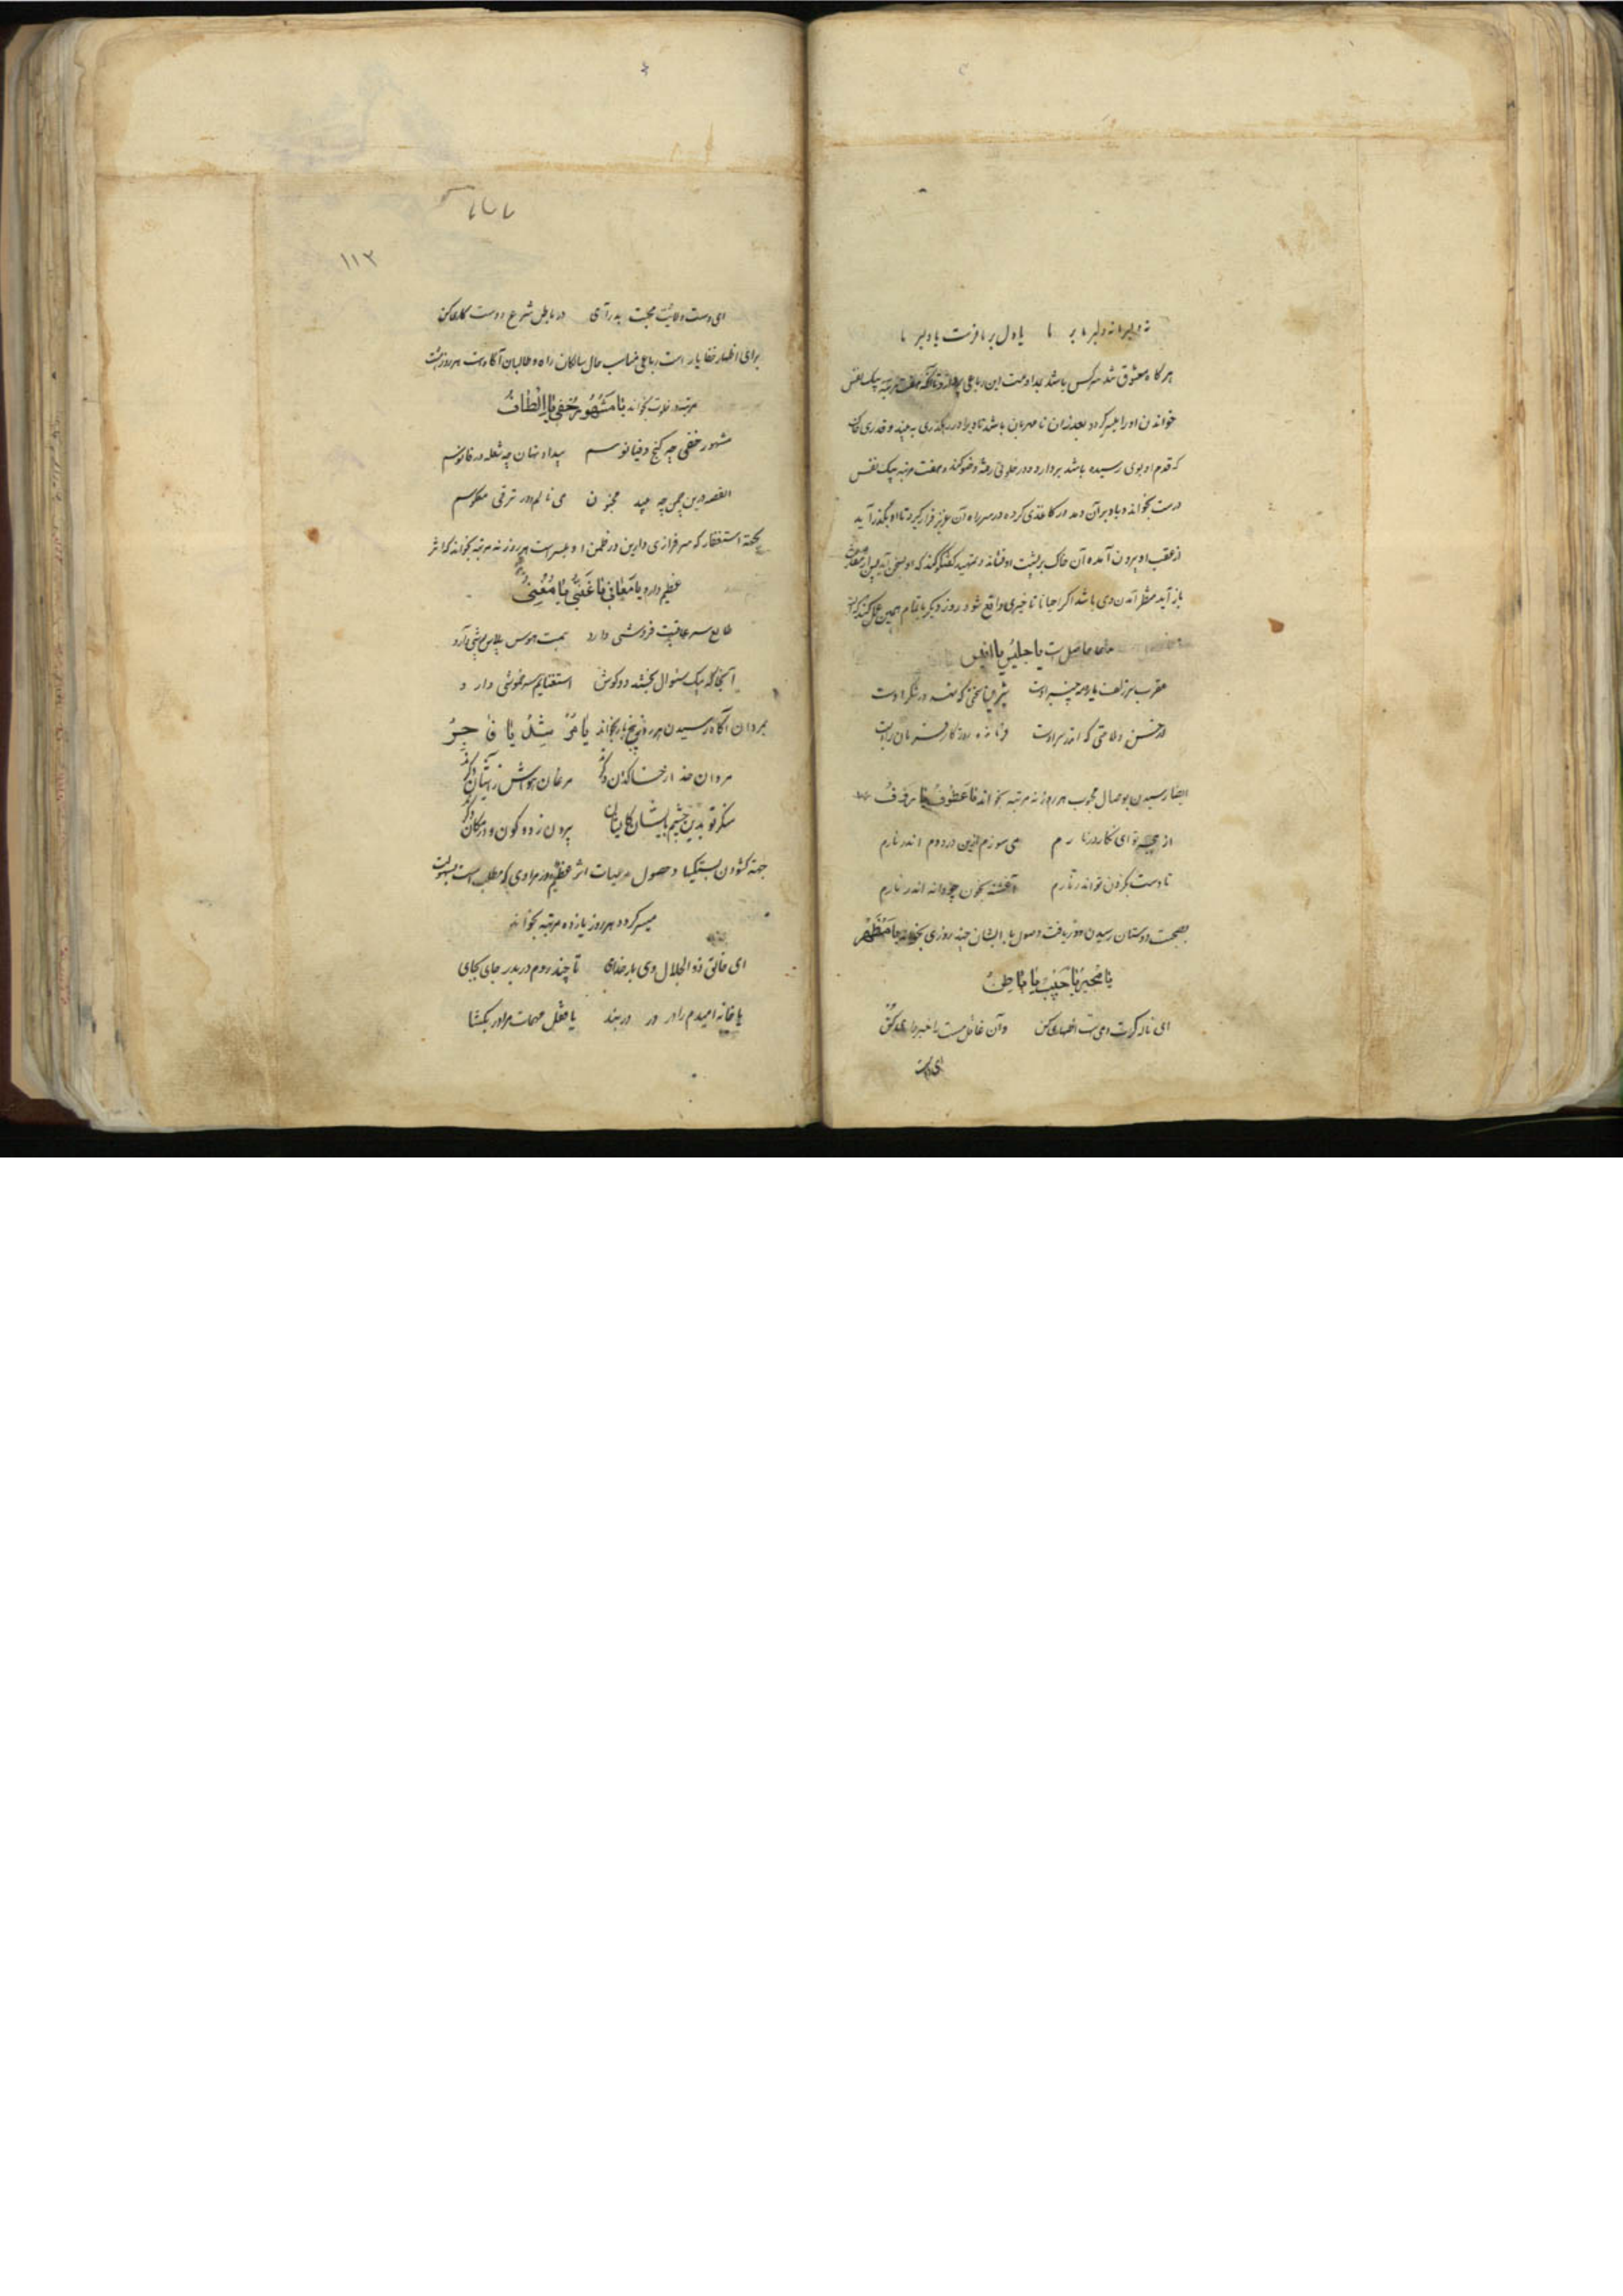 نه دلبر ما نه دلبر ما بر ما یا دل بر ما فرست یا دلبر ما
هرگاه معشوق شد هرکس باشد بمداومت این رباعی هفت مرتبه بیک نفس
خواندن او را میسر گردد بعد از آن نامهربان باشد تا ویرا در رهگذری به بیند و قدری خاک
که قدم او بوی رسیده باشد بردارد و در خلوتی رفته وضو کند و هفت مرتبه بیک نفس
درست بخواند و باد بر آن دمد در کاغذی کرده در سر راه آن عزیز قرار گیرد تا او بگذر آید
از عقب او برون آمده آن خاک بر پشت او فشاند و تمهید گفتگو کند که او بسخن آید پس از
باز آید منتظر آمدن وی باشد اگر احیانا تاخیری واقع شود روز دیگر باتمام همین عمل کند که
حاصل است یا جلیس یا انیس
عقرب سر زلف یار و مه چنبر اوست شیرین سخنی که شهد در شکر اوست
در حسن و ملاحتی که اندر سر اوست فرمانده روزگار فرمان بر اوست
ایضا رسیدن بوصال محبوب هر روز نه مرتبه بخواند یا عطوف یا رؤف
از هجر تو ای نگار در نارم می سوزم ازین درد و دم اندر نارم
تا دست بگردن تو اندر نارم آغشته بخون چو دانه اندر نارم
بصحبت دوستان رسیدن و دریافت وصول با ایشان چند روزی بخواند یا مظهر
یا مخبر یا حبیب یا باطن
ای ناله گرت دمی است اظهاری کن وآن غافل مست را خبرداری کن
ای دست
۱۱۲
ای دست ولایت محبت بدر آی در باطن شرع دوست کاری کن
برای اظهار خفایا راست رباعی مناسب حال سالکان راه و طالبان آگاه است هر روز هشت
مرتبه در خلوت بخواند یا مشهور خفی یا الطاف
مشهور و خفی چو گنج دقیانوسم پیدا و نهان چو شعله در فانوسم
القصه درین چمن چو بید مجنون می نالم و در ترقی معکوسم
بجهة استغفار که سرفرازی دارین در ضمن او میسر است هر روز نه مرتبه بخواند که اثر
عظیم دارد یا معافی یا غنی یا مغنی
طالع سر عاقبت فروشی دارد همت هوس پلاس پوشی دارد
آنجا که بیک سئوال بخشند دو کون استغنایم سر خموشی دارد
بمردان آگاه رسیدن هر روز پنج بار بخواند یا مرشد یا فاجر
مردان خدا ز خاکدان دگرند مرغان هوا ز آشیان دگرند
منگر تو بدین چشم بایشان کایشان بیرون ز دو کون و در مکان دگرند
جهة گشودن بستگیها و حصول مرضیات اثر عظیم دارد هر مرادی که مطلب است بسهولت
میسر گردد هر روز یازده مرتبه بخواند
ای خالق ذوالجلال وی بارخدای تا چند روم دربدر جای بجای
یا خانه امیدم را در در بند یا قفل مهمات مرا در بگشا